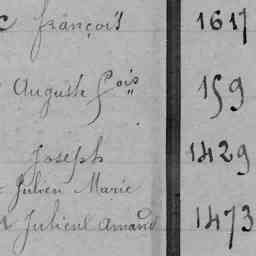 françois 1617
Auguste Fçois 159
Joseph 1429
Julien Marie
Julien Amand 1473